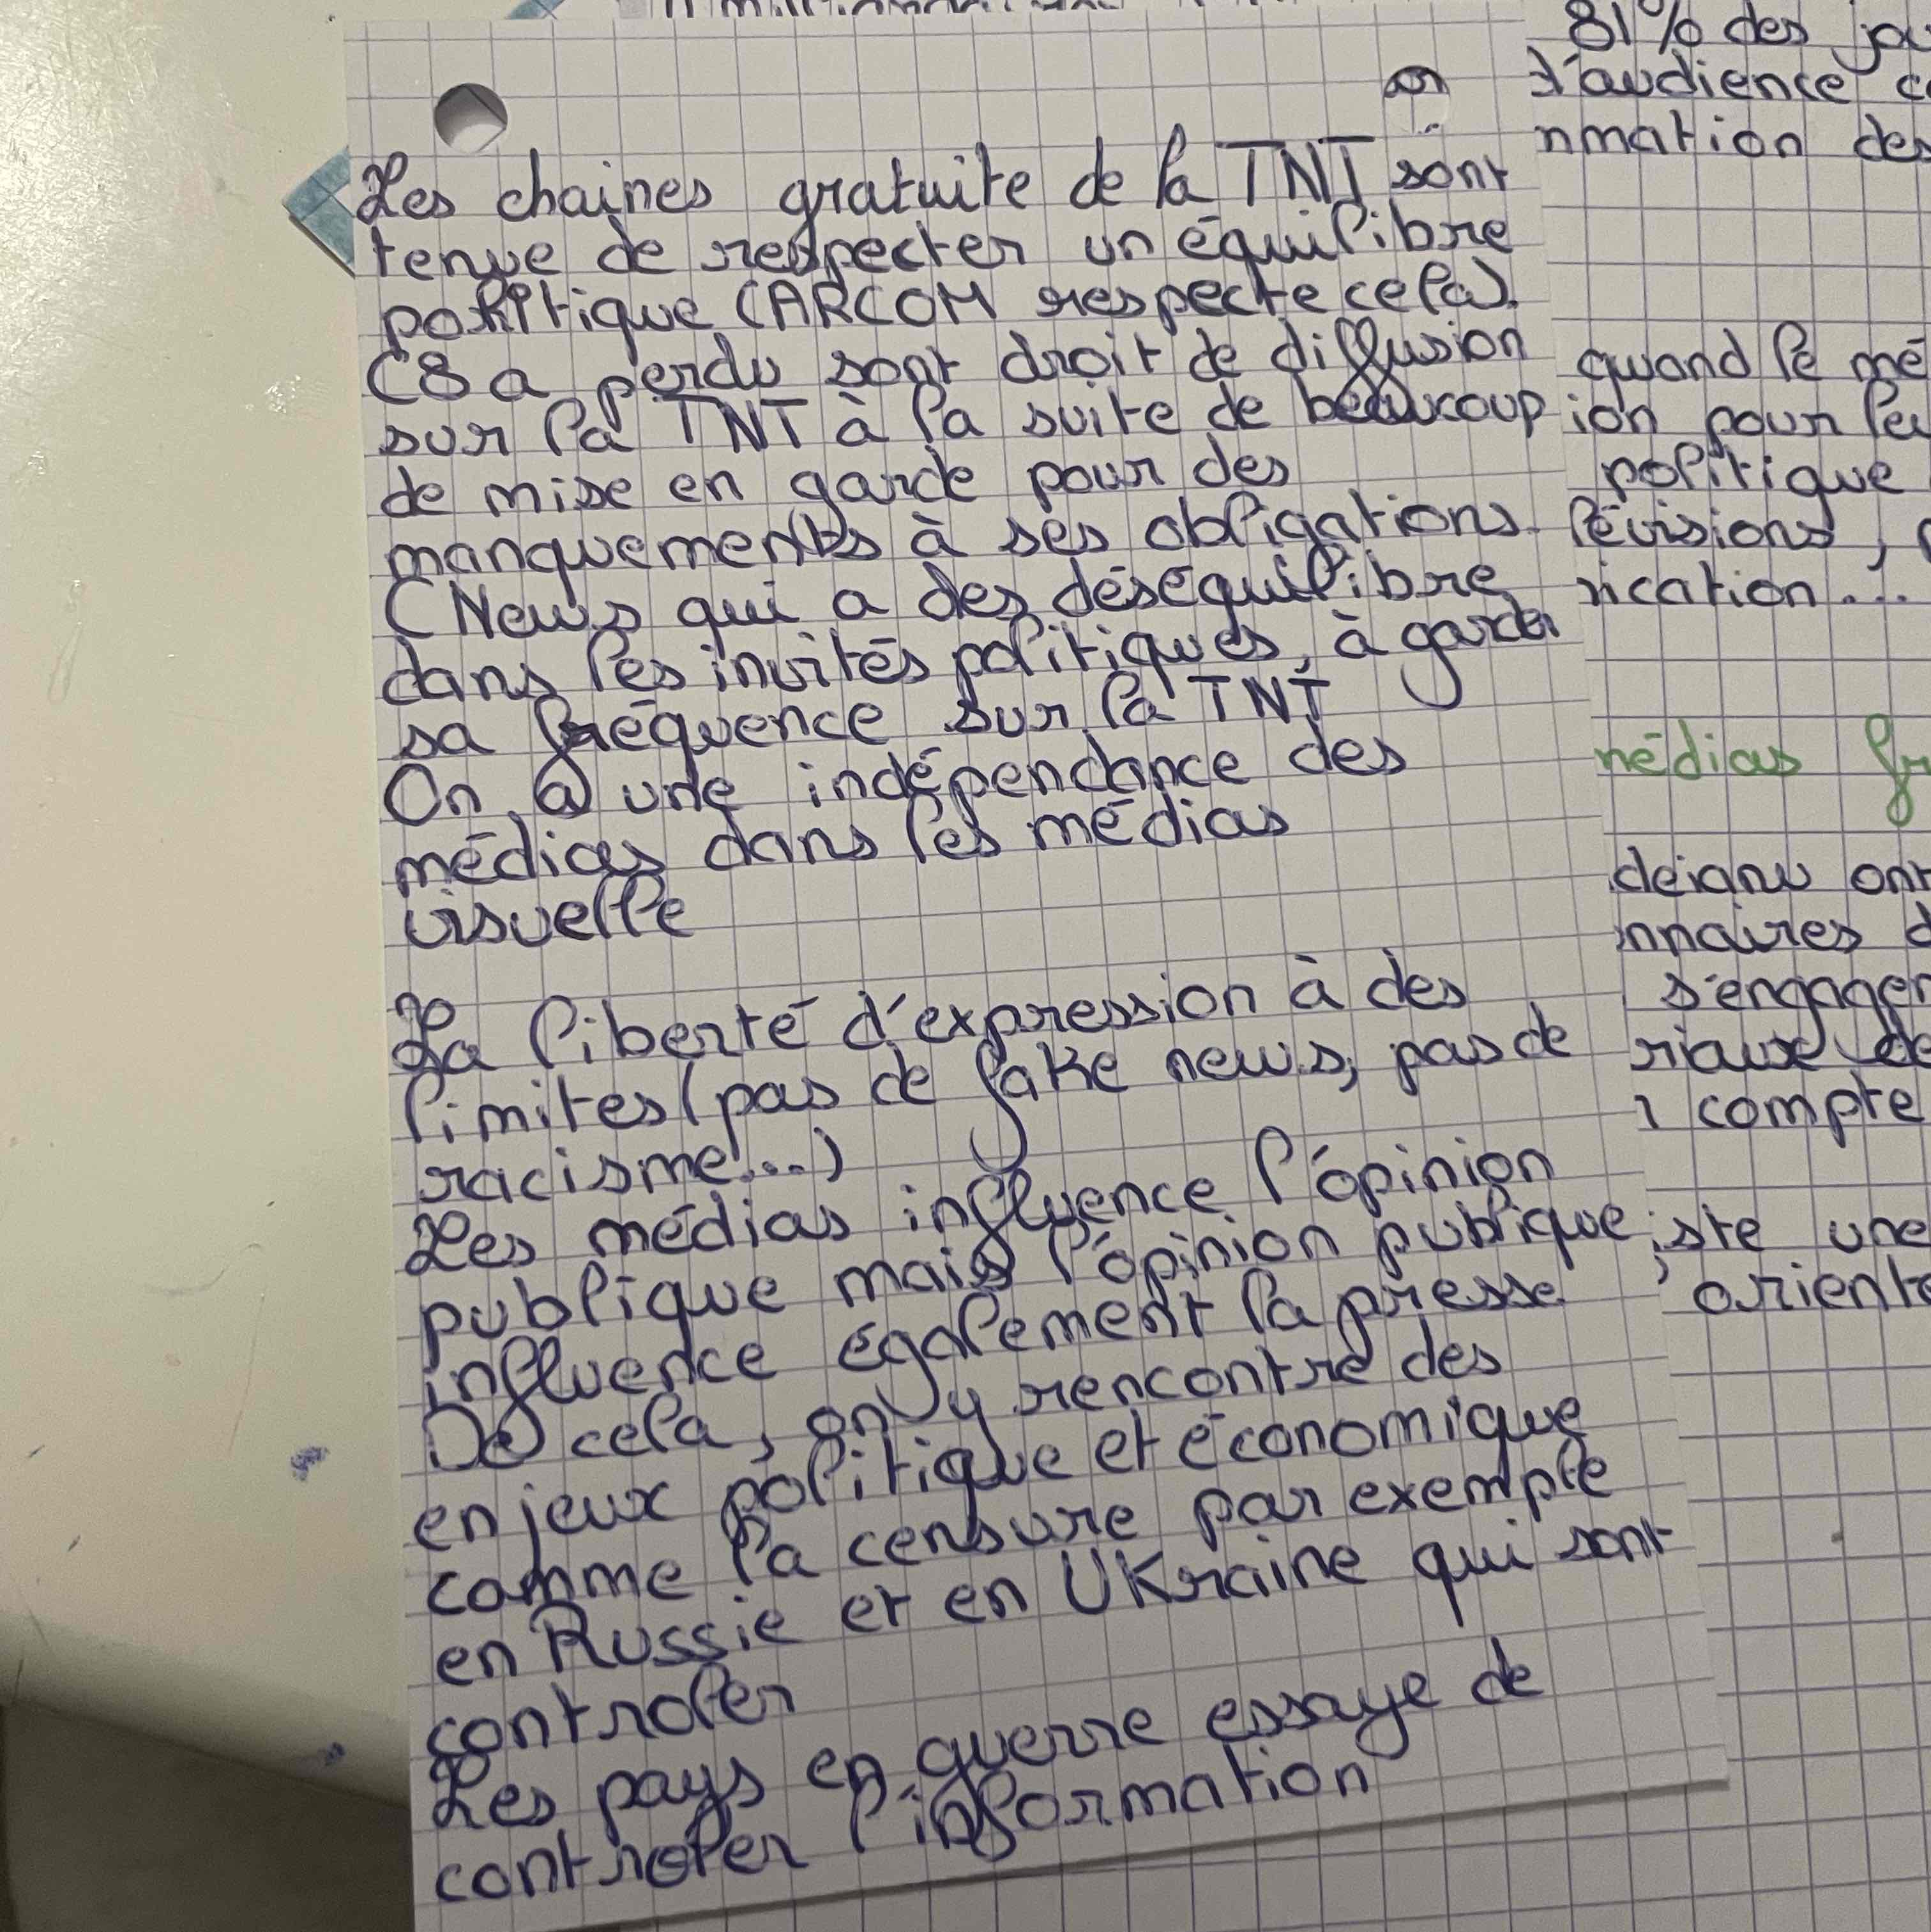 Les chaines gratuite de la TNT sont
tenue de respecter un équilibre
politique (ARCOM respecte cela).
C8 a perdu sont droit de diffusion
sur la TNT à la suite de beaucoup
de mise en garde pour des
manquements à ses obligations.
CNews qui a des déséquilibre
dans les invités politiques, à garder
sa fréquence sur la TNT
On a une indépendance des
médias dans les médias
visuelle
La liberté d'expression à des
limites (pas de fake news, pas de
racisme...)
Les médias influence l'opinion
publique mais l'opinion publique
influence également la presse
De cela, on y rencontre des
enjeux politique et économique
comme la censure par exemple
en Russie et en Ukraine qui sont
controler
Les pays en guerre essaye de
controler l'information
81% des jou
d'audience c
mmation des
quand le mé
ion pour les
politique
lévisions, l
nication...
médias fr
ont
nnaires d
s'engager
riaux de
compte
iste une
oriente